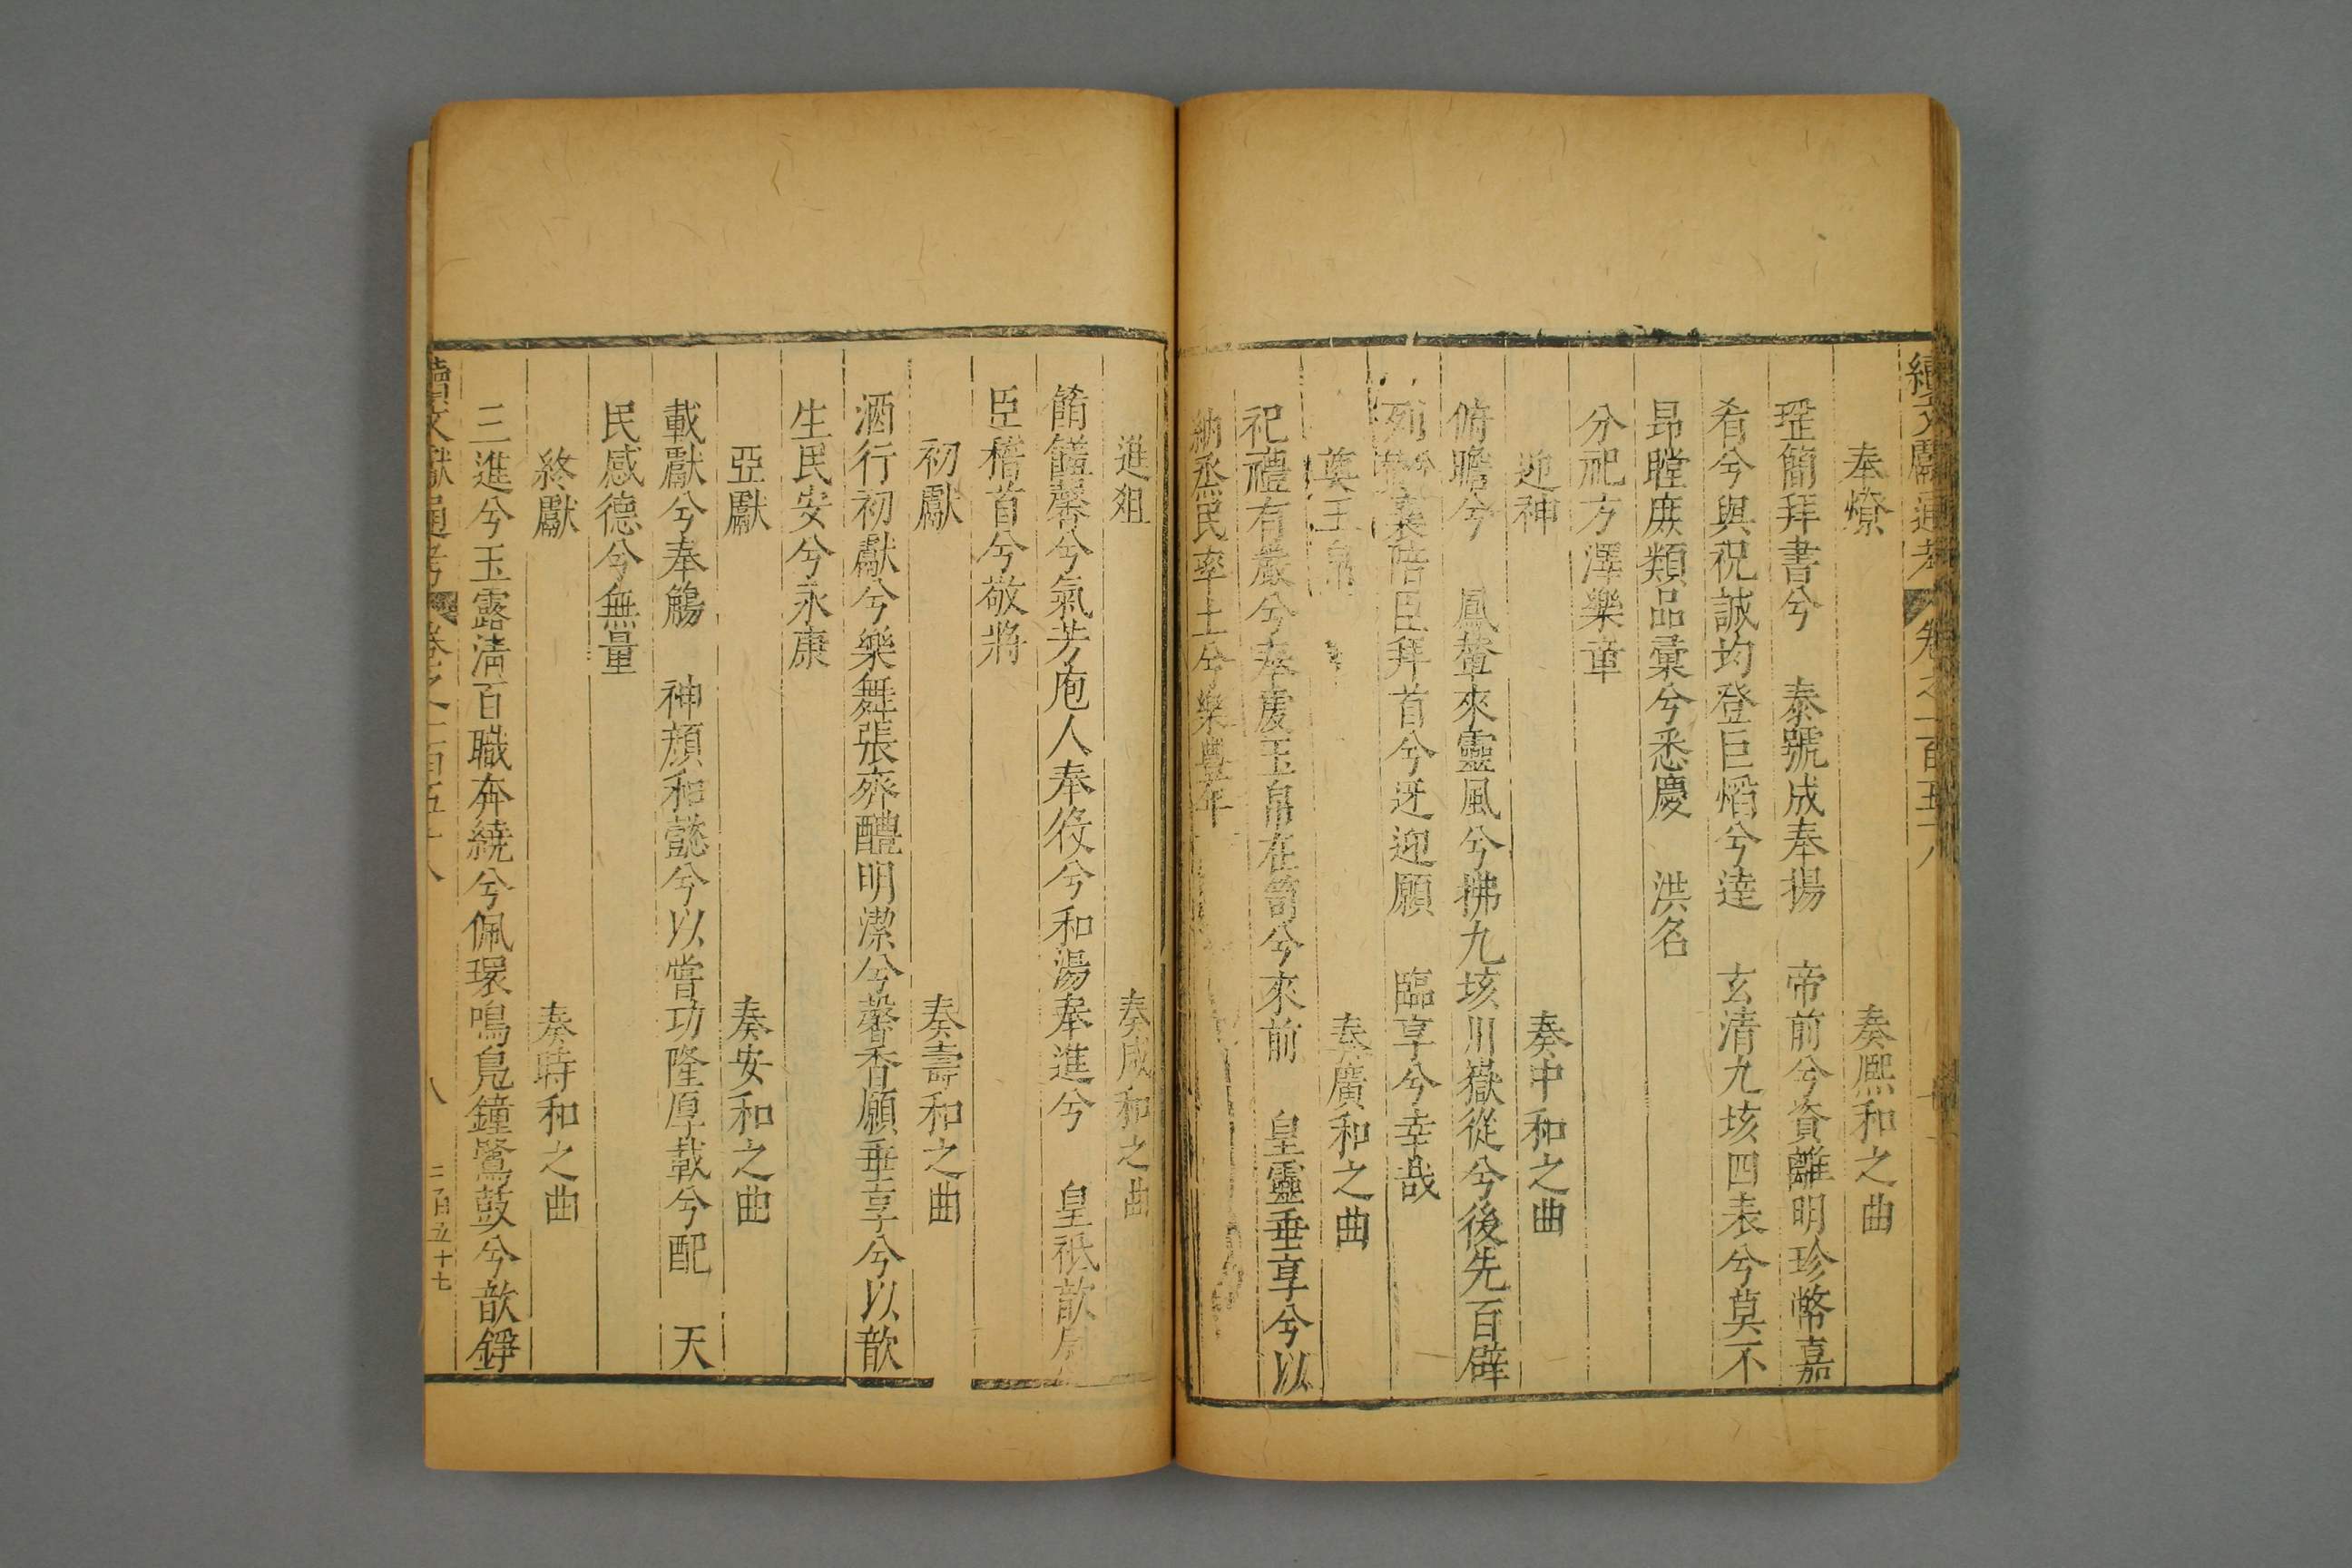 續文獻通考 卷之一百五十八
奉燎 奏熈和之曲
琁簡拜書兮 泰號成奉揚 帝前兮資離明珍幣嘉
肴兮與祝誠均登巨熖兮達 玄清九垓四表兮莫不
昻瞠庻類品彙兮悉慶 洪名
分祀方澤樂章
迎神 奏中和之曲
俯瞻兮 鳳輦來靈風兮拂九垓川嶽從兮後先百辟
列兮襄陪臣拜首兮迓迎願 臨享兮幸哉
奠玉帛 奏廣和之曲
祀禮有嚴兮奉虔玉帛在笥兮來前 皇靈垂享兮以
納烝民率土兮樂豊年
進俎 奏咸和之曲
餚饈馨兮氣芳庖人奉役兮和湯奉進兮 皇祇歆
臣稽首兮敬將
初獻 奏壽和之曲
酒行初獻兮樂舞張齊醴明潔兮馨香願垂享兮以歆
生民安兮永康
亞獻 奏安和之曲
載獻兮奉觴 神顏和懿兮以嘗功隆厚載兮配 天
民感德兮無量
終獻 奏時和之曲
三進兮玉露清百職奔繞兮佩環鳴鳬鐘鷺鼓兮歆錚
續文獻通考 卷之一百五十八 八 二百五十七